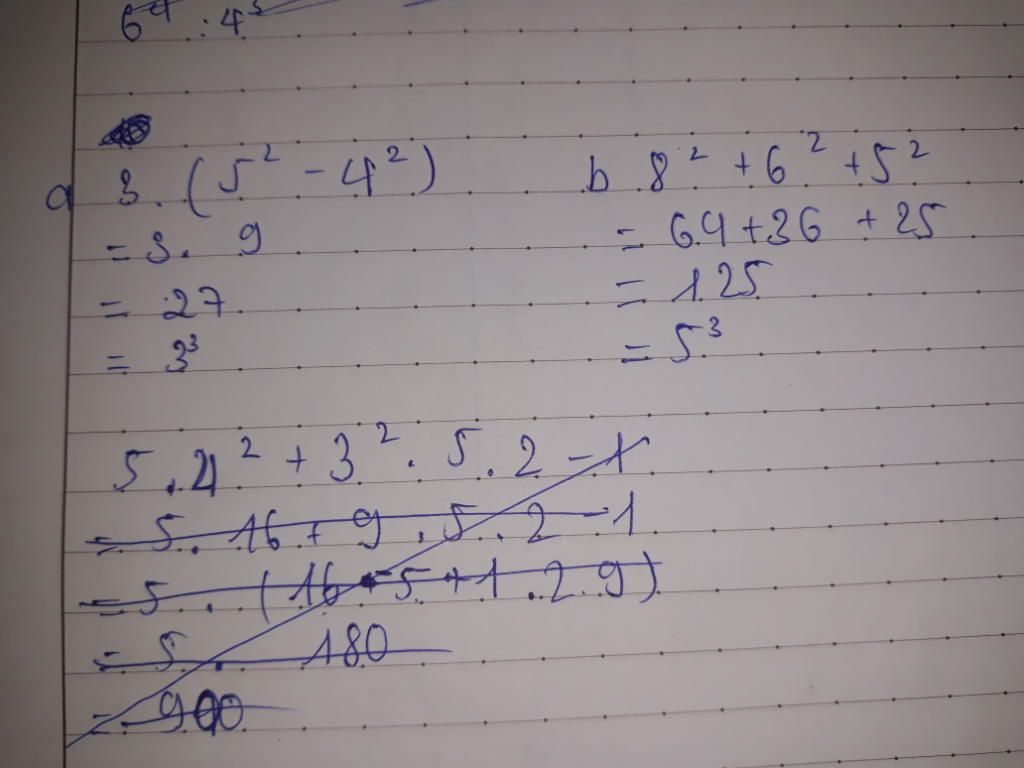 6⁴ : 4³
a 3 . (5² - 4²)
= 3 . 9
= 27
= 3³
b 8² + 6² + 5²
= 64 + 36 + 25
= 125
= 5³
5 . 4² + 3² . 5 . 2 - 1
= 5 . 16 + 9 . 5 . 2 - 1
= 5 . (16 + 5 + 1 . 2 . 9)
= 5 . 180
= 900